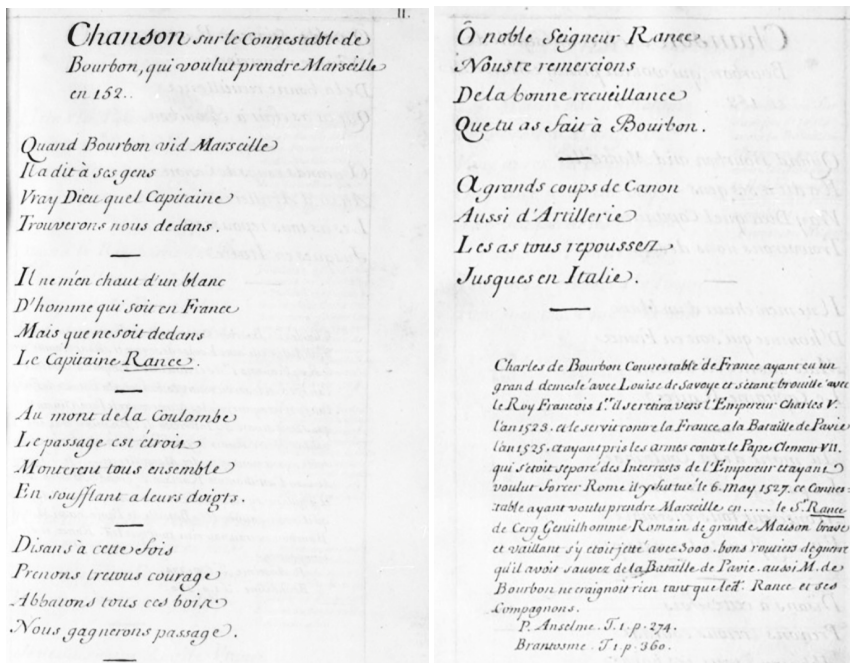 11.
Chanson sur le Connestable de
Bourbon, qui voulut prendre Marseille
en 152..
Quand Bourbon vid Marseille
Il a dit à ses gens
Vray Dieu quel Capitaine
Trouverons nous dedans.
Il ne m'en chaut d'un blanc
D'homme qui soit en France
Mais que ne soit dedans
Le Capitaine Rance.
Au mont de la Coulombe
Le passage est étroit
Monterent tous ensemble
En soufflant a leurs doigts.
Disans à cette fois
Prenons tretous courage
Abbatons tous ces bois
Nous gagnerons passage.
Ô noble Seigneur Rance
Nous te remercions
De la bonne recueillance
Que tu as fait à Bourbon.
A grands coups de Canon
Aussi d'Artillerie
Les as tous repoussez
Jusques en Italie.
Charles de Bourbon Connestable de France ayant eu un
grand demeslé avec Louise de Savoye et s'étant brouillé avec
le Roy Francois 1er il se retira vers l'Empereur Charles V.
l'an 1523. et le servit contre la France a la Bataille de Pavie
l'an 1525. et ayant pris les armes contre le Pape Clement VII.
qui s'étoit separé des Interrests de l'Empereur et ayant
voulut forcer Rome il y fut tué le 6. May 1527. ce Connes-
table ayant voulu prendre Marseille en .... le Sr. Rance
de Cerg Gentilhomme Romain de grande Maison brave
et vaillant s'y étoit jetté avec 3000. bons routiers de guerre
qu'il avoit sauvez de la Bataille de Pavie. aussi M. de
Bourbon ne craignoit rien tant que led. Rance et ses
Compagnons.
P. Anselme. T. 1. p. 274.
Brantosme. T. 1. p. 360.